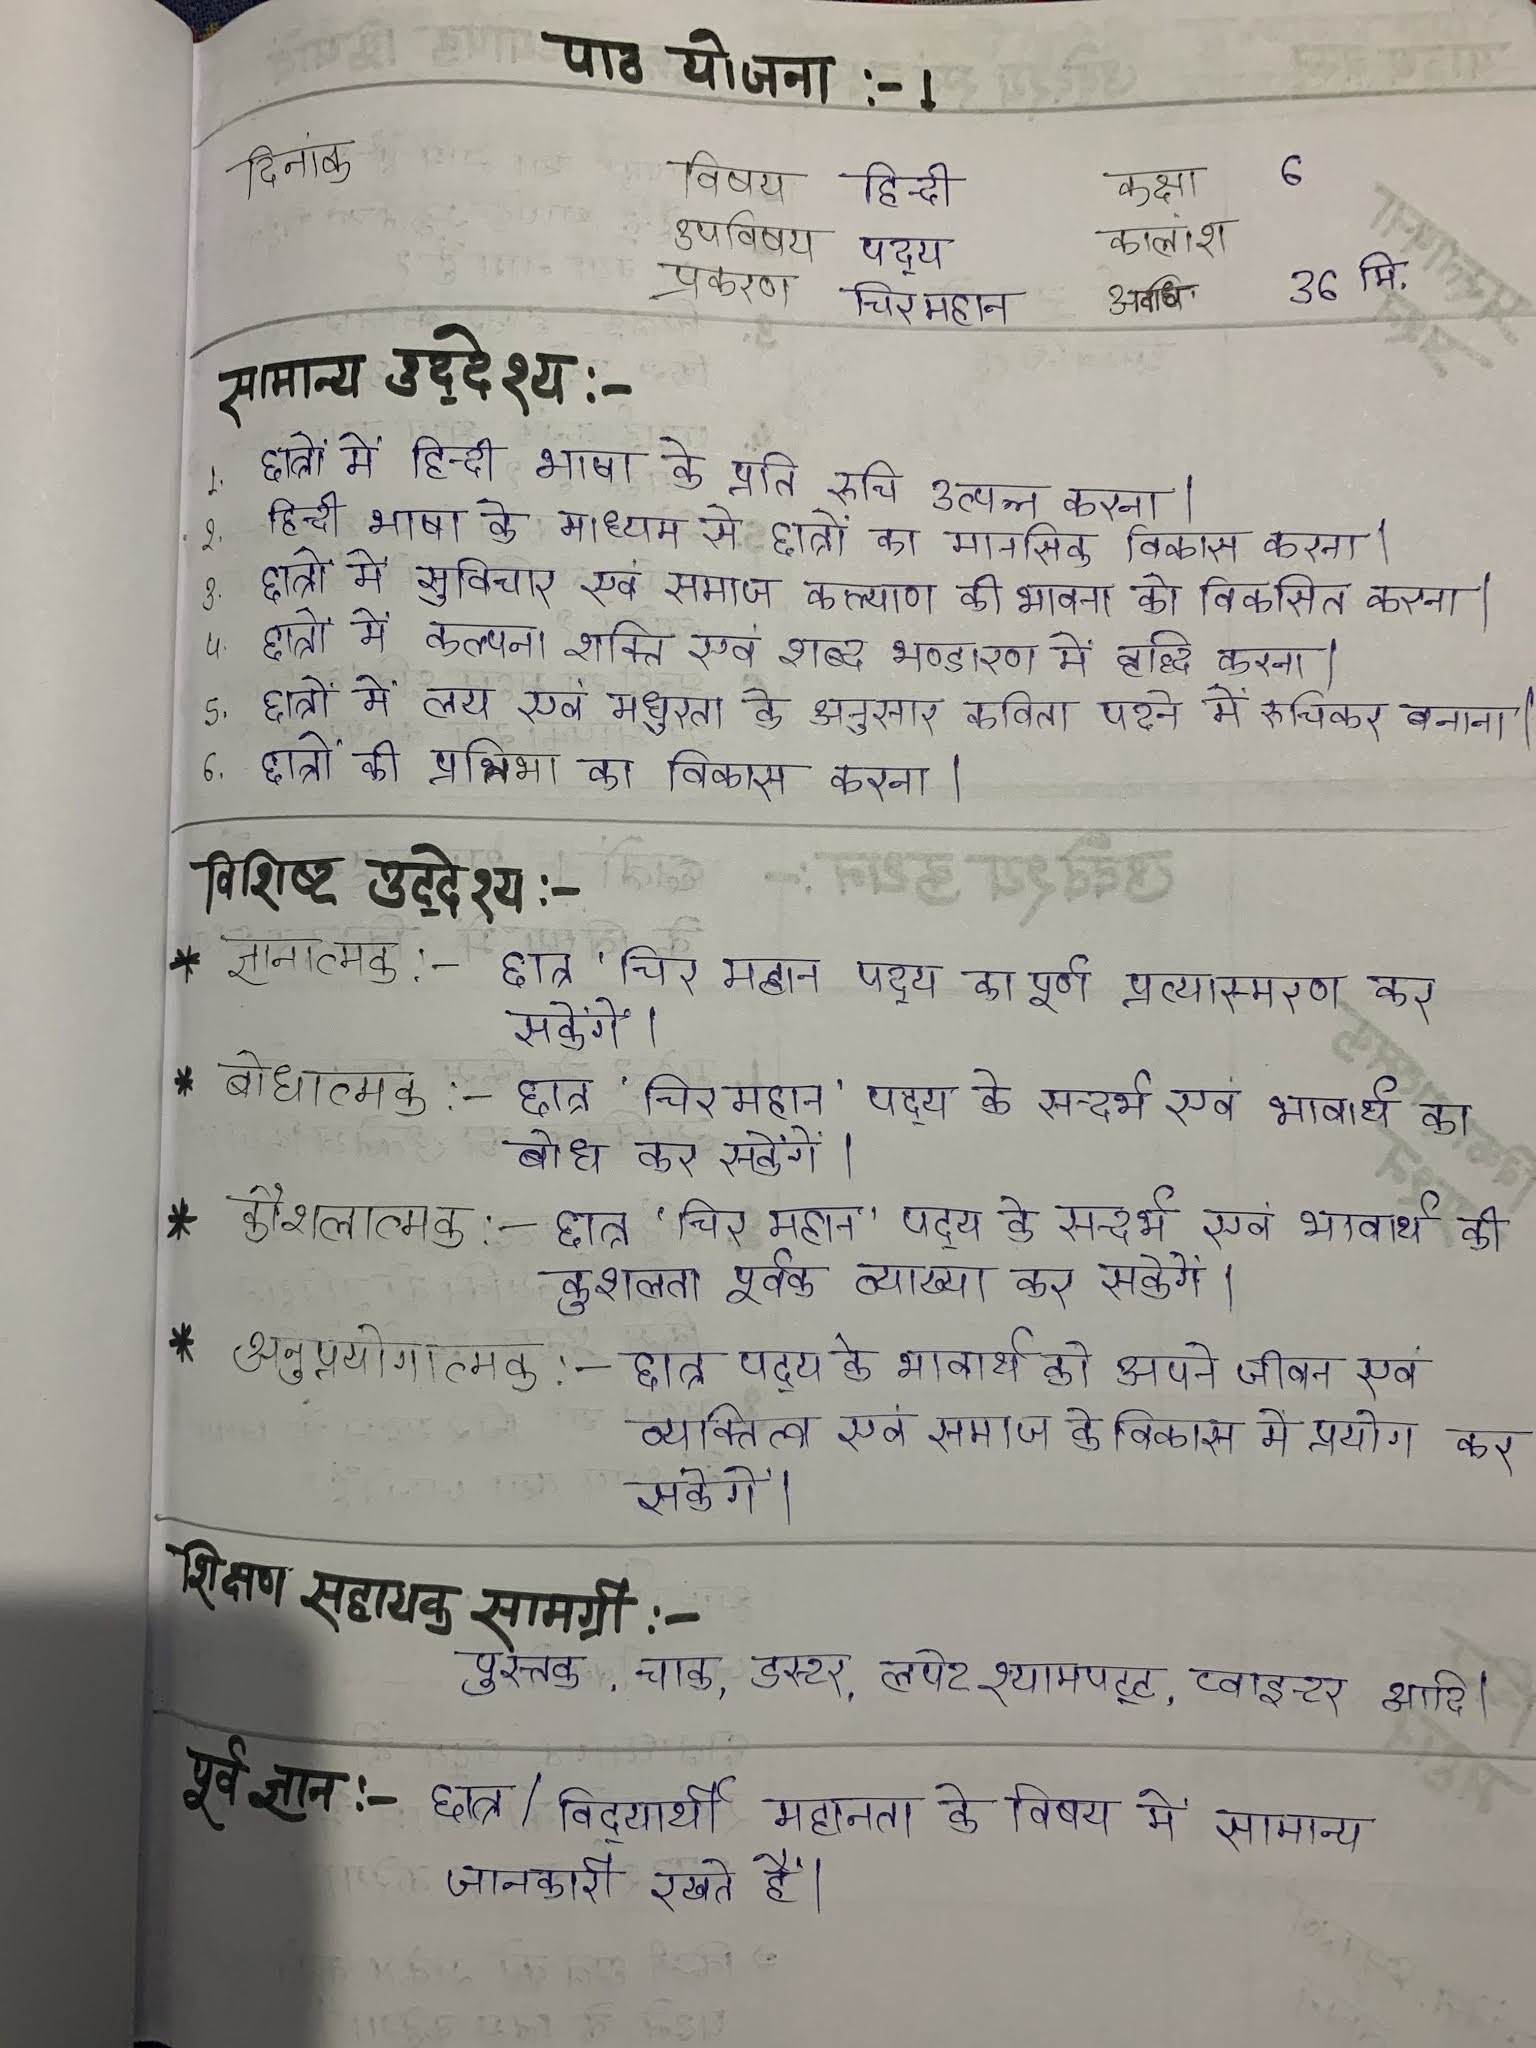 पाठ योजना :- 1
दिनांक
विषय हिन्दी कक्षा 6
उपविषय पद्य कालांश
प्रकरण चिरमहान अवधि 36 मि.
सामान्य उद्देश्य :-
1. छात्रों में हिन्दी भाषा के प्रति रुचि उत्पन्न करना।
2. हिन्दी भाषा के माध्यम से छात्रों का मानसिक विकास करना।
3. छात्रों में सुविचार एवं समाज कल्याण की भावना को विकसित करना।
4. छात्रों में कल्पना शक्ति एवं शब्द भण्डारण में वृद्धि करना।
5. छात्रों में लय एवं मधुरता के अनुसार कविता पढने में रुचिकर बनाना।
6. छात्रों की प्रतिभा का विकास करना।
विशिष्ट उद्देश्य :-
* ज्ञानात्मक :- छात्र 'चिर महान पद्य का पूर्ण प्रत्यास्मरण कर
सकेंगें।
* बोधात्मक :- छात्र 'चिर महान' पद्य के सन्दर्भ एवं भावार्थ का
बोध कर सकेंगें।
* कौशलात्मक :- छात्र 'चिर महान' पद्य के सन्दर्भ एवं भावार्थ की
कुशलता पूर्वक व्याख्या कर सकेगें।
* अनुप्रयोगात्मक :- छात्र पद्य के भावार्थ को अपने जीवन एवं
व्यक्तित्व एवं समाज के विकास में प्रयोग कर
सकेगें।
शिक्षण सहायक सामग्री :-
पुस्तक, चाक, डस्टर, लपेट श्यामपट्ट, प्वाइन्टर आदि।
पूर्व ज्ञान :- छात्र / विद्यार्थी महानता के विषय में सामान्य
जानकारी रखते हैं।